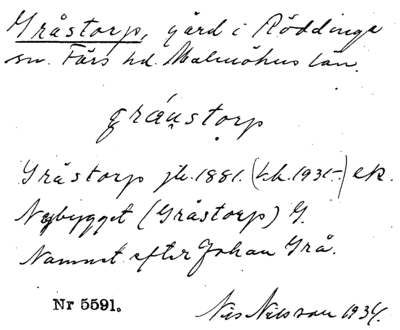 Gråstorp, gård i Röddinge
sn. Färs hd. Malmöhus län.
gráu̯storp
Gråstorp jb. 1881. (t.h. 1931-) ek.
Nybygget (Gråstorp) G.
Namnet efter Johan Grå.
Nr 5591.
Nils Nilsson 1934.